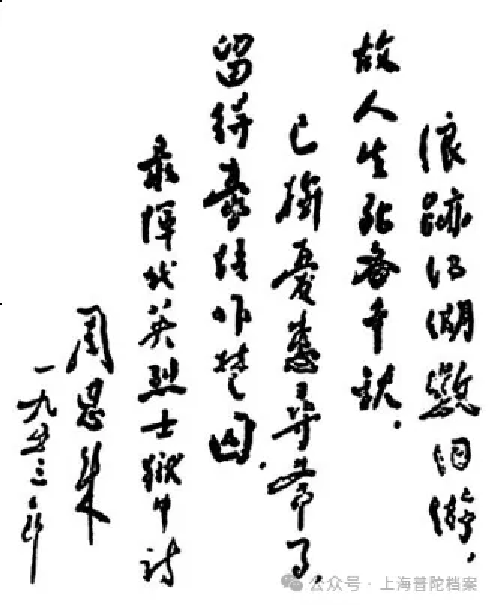 浪跡江湖憶旧游，
故人生死各千秋，
已擯憂患尋常事，
留得豪情作楚囚。
录惲代英烈士獄中詩
周恩来
一九五三年
公众号·上海普陀档案